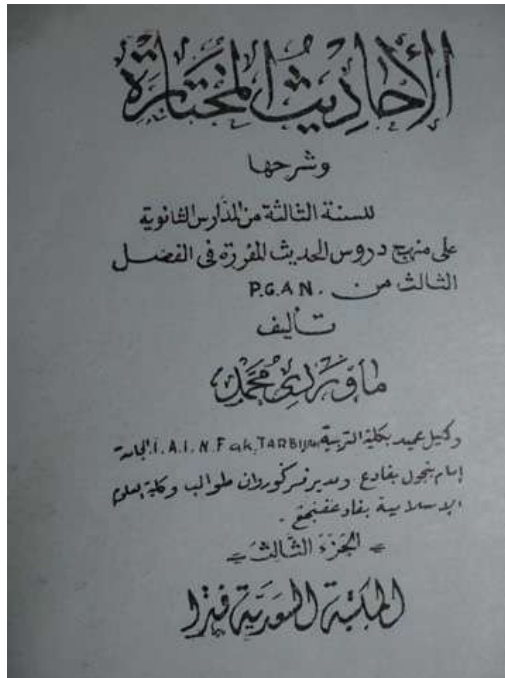 الأحاديث المختارة
وشرحها
للسنة الثالثة من المدارس الثانوية
على منهج دروس الحديث المقررة فى الفصل
الثالث من P.G.A.N.
تأليف
محمد
وكيل عميد بكلية التربية I.A.I.N. Fak, TARBIJAH
إمام بنجول بفادغ ومدير فركوروان طوالب وكلية
الإسلامية
= الجزء الثالث =
المكتبة السعدية فترا